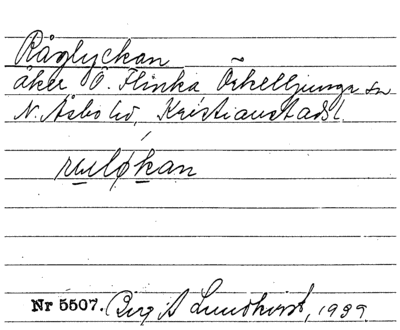 Råglyckan
åker Ö. Flinka Örkelljunga sn
N. Åsbo hd, Kristianstads l.
ruuløkan
Nr 5507. Birg A Lundkvist, 1939